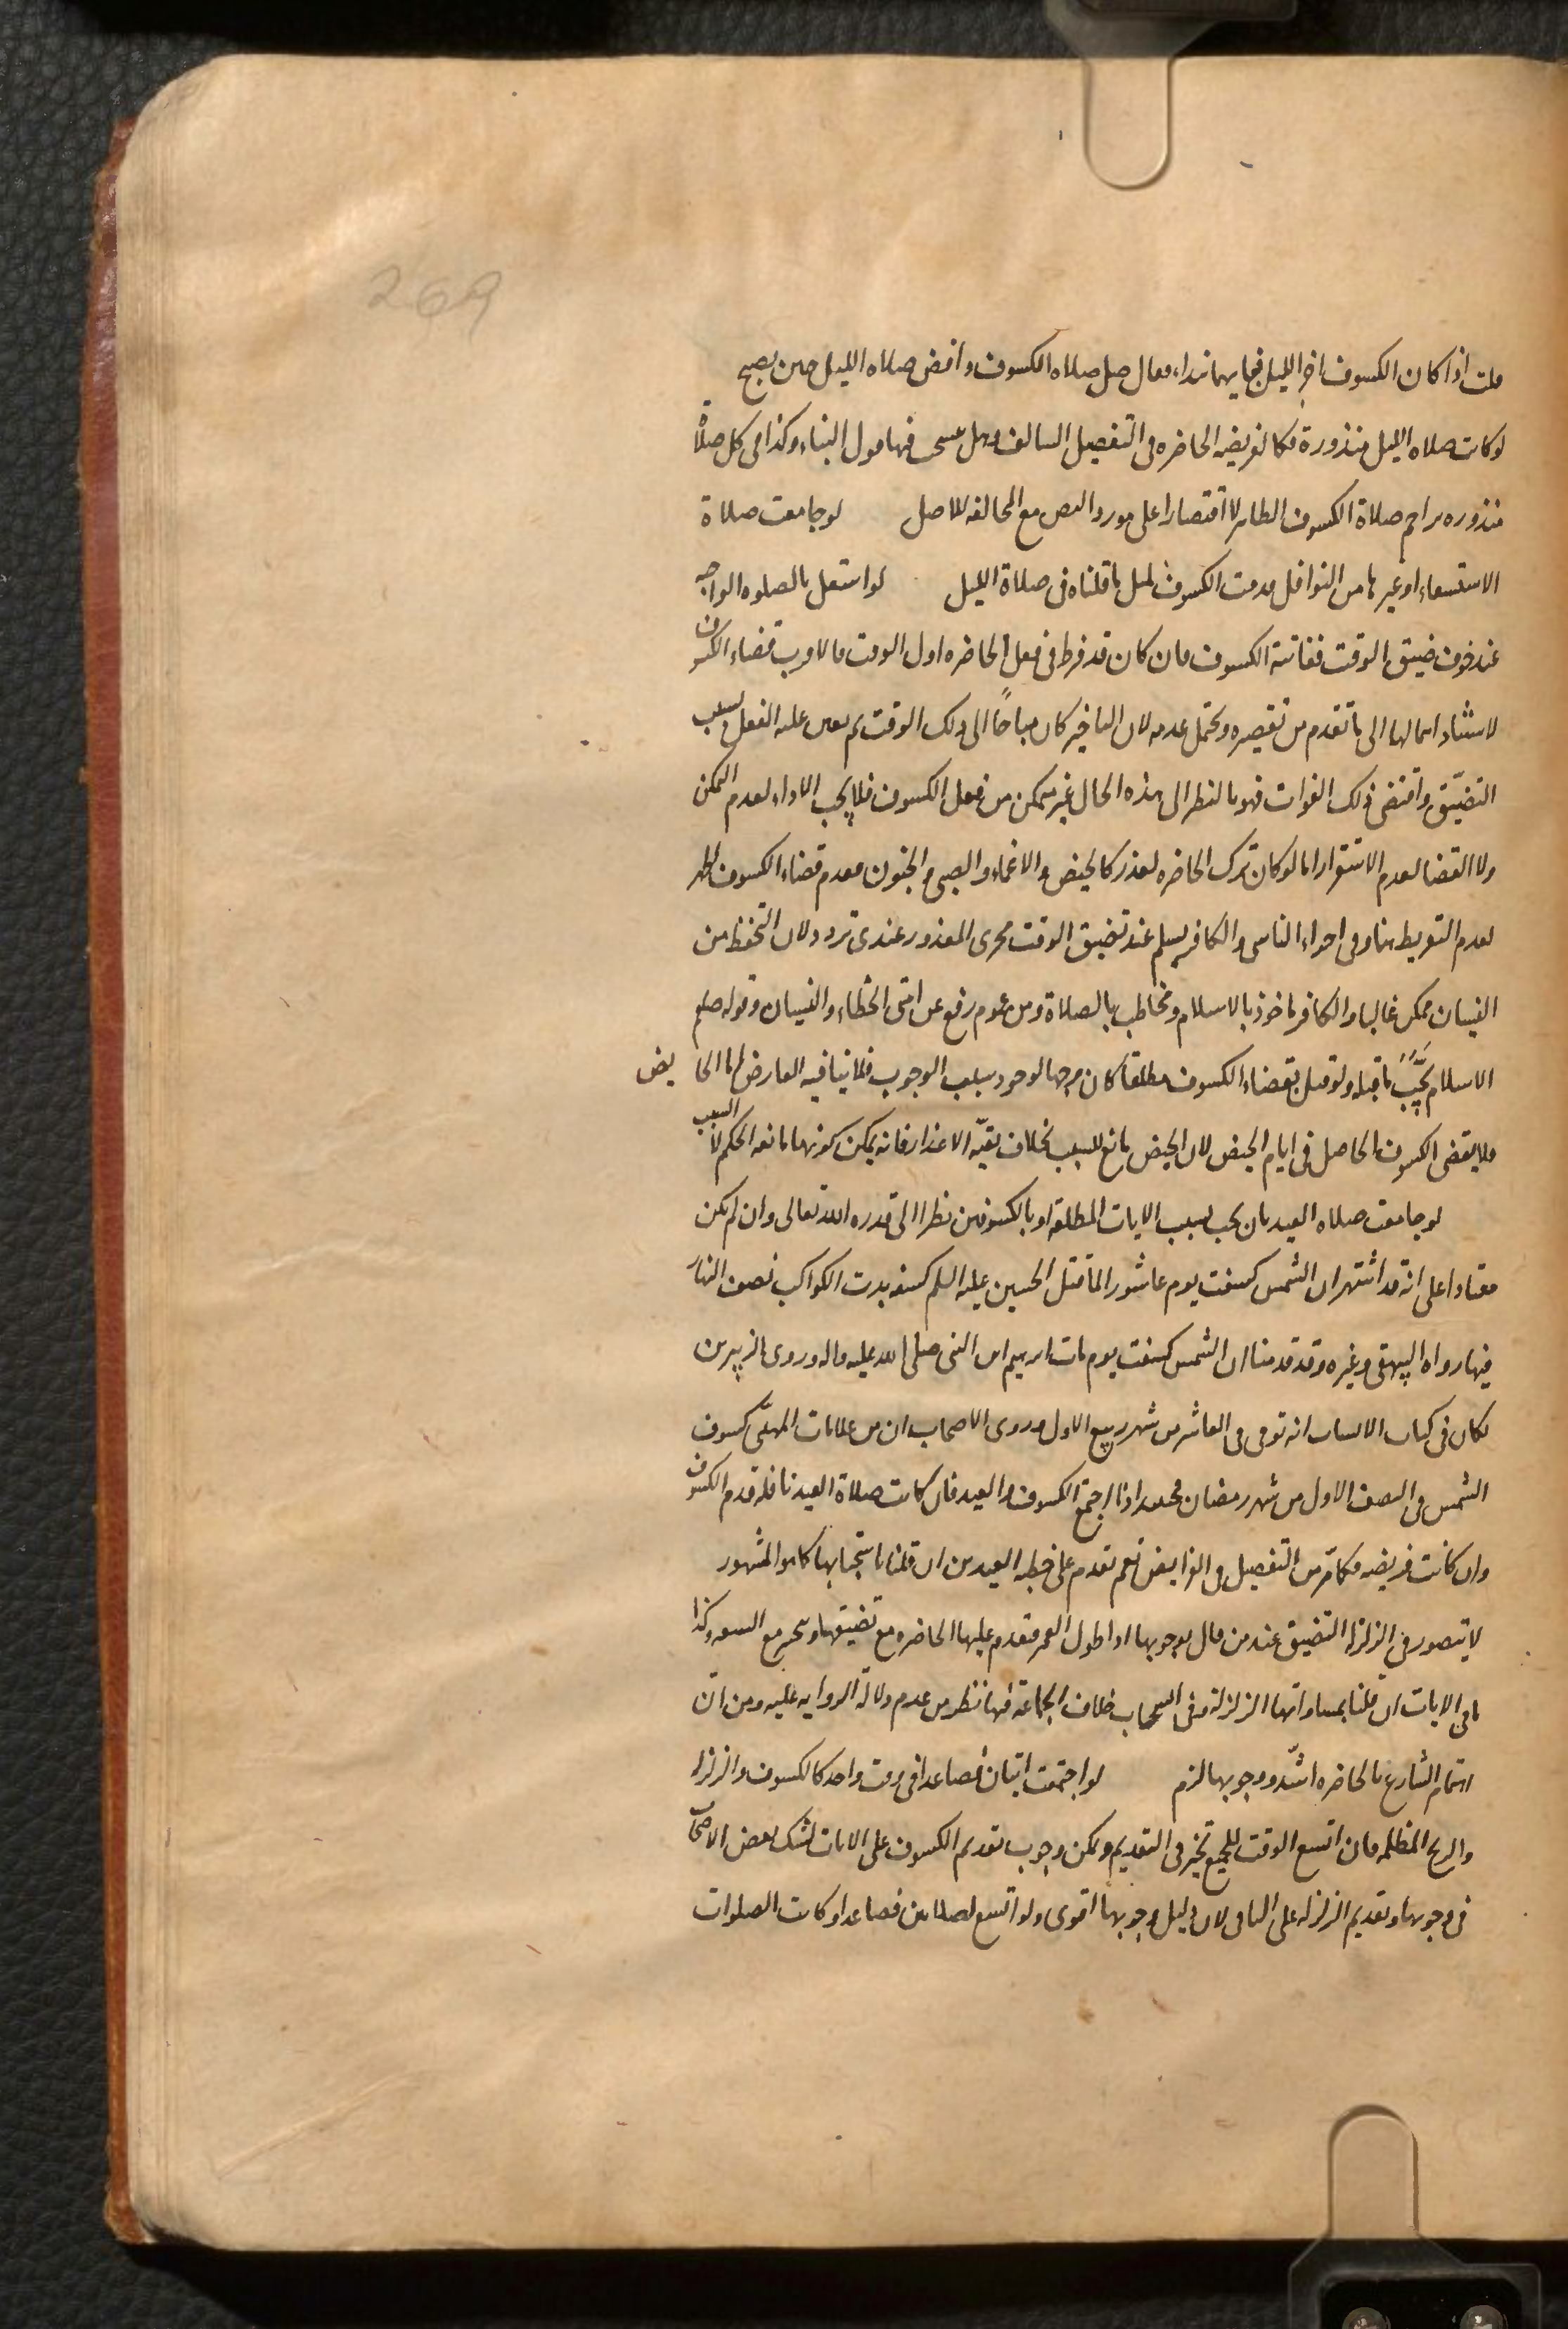 269
قلت اذا كان الكسوف اخر الليل فبايهما نبداء فقال صل صلاه الكسوف واقض صلاه الليل حين يصبح
لو كانت صلاه الليل منذورة فكالفريضه الحاضره فى التفصيل السالف وهل ينسحب فيها قول البناء وكذا فى كل صلاة
منذوره تزاحم صلاة الكسوف الظاهر لا اقتصارا على مورد النص مع المخالفه للاصل لو جامعت صلاة
الاستسقاء او غيرها من النوافل قدمت الكسوف لمثل ما قلناه فى صلاة الليل لو اشتغل بالصلوه الواجبه
عند خوف ضيق الوقت ففاتته الكسوف فان كان قد فرط فى فعل الحاضره اول الوقت فالاقرب قضاء الكسوف
لاستناد اهمالها الى ما تقدم من تقصيره ويحتمل عدمه لان التاخير كان مباحًا الى ذلك الوقت ثم تعين عليه الفعل بسبب
التضيّق واقتضى ذلك الفوات فهو بالنظر الى هذه الحال غير متمكن من فعل الكسوف فلا يجب الاداء لعدم التمكن
ولا القضا لعدم الاستقرار اما لو كان ترك الحاضره لعذر كالحيض والاغماء والصبى والجنون فعدم قضاء الكسوف اظهر
لعدم التفريط هنا وفى اجراء الناسى والكافر يسلم عند تضيق الوقت مجرى المعذور عندى تردد لان التحفظ من
النسيان ممكن غالبا والكافر ماخوذ بالاسلام ومخاطب بالصلاة ومن عموم رفع عن امتى الخطاء والنسيان وقوله صلعم
الاسلام يَجُبُّ ما قبله ولو قيل بقضاء الكسوف مطلقا كان وجها لوجود سبب الوجوب فلا ينافيه العارض اما الحايض
فلا يقضى الكسوف الحاصل فى ايام الحيض لان الحيض مانع للسبب بخلاف بقيّه الاعذار فانه يمكن كونها مانعه الحكم لا السبب
لو جامعت صلاه العيد بان يجب بسبب الايات المطلقه او بالكسوفين نظرا الى قدره الله تعالى وان لم يكن
معتادا على انه قد اشتهر ان الشمس كسفت يوم عاشورا لما قتل الحسين عليه السلم كسفه بدت الكواكب نصف النهار
فيها رواه البيهقى وغيره وقد قدمنا ان الشمس كسفت يوم مات ابرهيم ابن النبى صلى الله عليه واله وروى الزبير بن
بكار فى كتاب الانساب انه توفى فى العاشر من شهر ربيع الاول وروى الاصحاب ان من علامات المهدّى كسوف
الشمس فى النصف الاول من شهر رمضان فحينئذ اذا اجتمع الكسوف والعيد فان كانت صلاة العيد نافله قدم الكسوف
وان كانت فريضه فكما مرّ من التفصيل فى الفرايض نعم تقدم على خطبه العيدين ان قلنا باستحبابها كما هو المشهور
لا يتصور فى الزلزله التضيق عند من قال بوجوبها اداءً طول العمر فتقدم عليها الحاضره مع تضيقها ويتخير مع السعه وكذا
باقى الايات ان قلنا بمساواتها الزلزلة وفى استحباب خلاف الجماعة فيها نظر من عدم دلالة الروايه عليه ومن ان
اهتمام الشارع بالحاضره اشدّ ووجوبها الزم لو اجتمعت ايتان فصاعدا فى وقت واحد كالكسوف والزلزله
والريح المظلمه فان اتسع الوقت للجميع تخير فى التقديم ويمكن وجوب تقديم الكسوف على الايات لشك بعض الاصحاب
فى وجوبها وتقديم الزلزله على الباقى لان دليل وجوبها اقوى ولو اتسع لصلاتين فصاعدا وكانت الصلوات